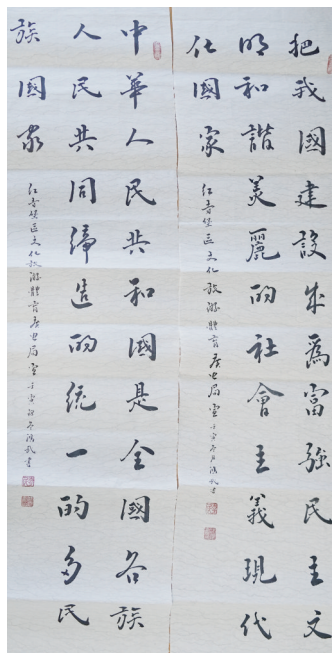 把我國建設成為富強民主文
明和諧美麗的社會主義現代
化國家
红寺堡區文化旅游體育廣电局
中華人民共和國是全國各族
人民共同締造的統一的多民
族國家
红寺堡區文化旅游體育廣电局